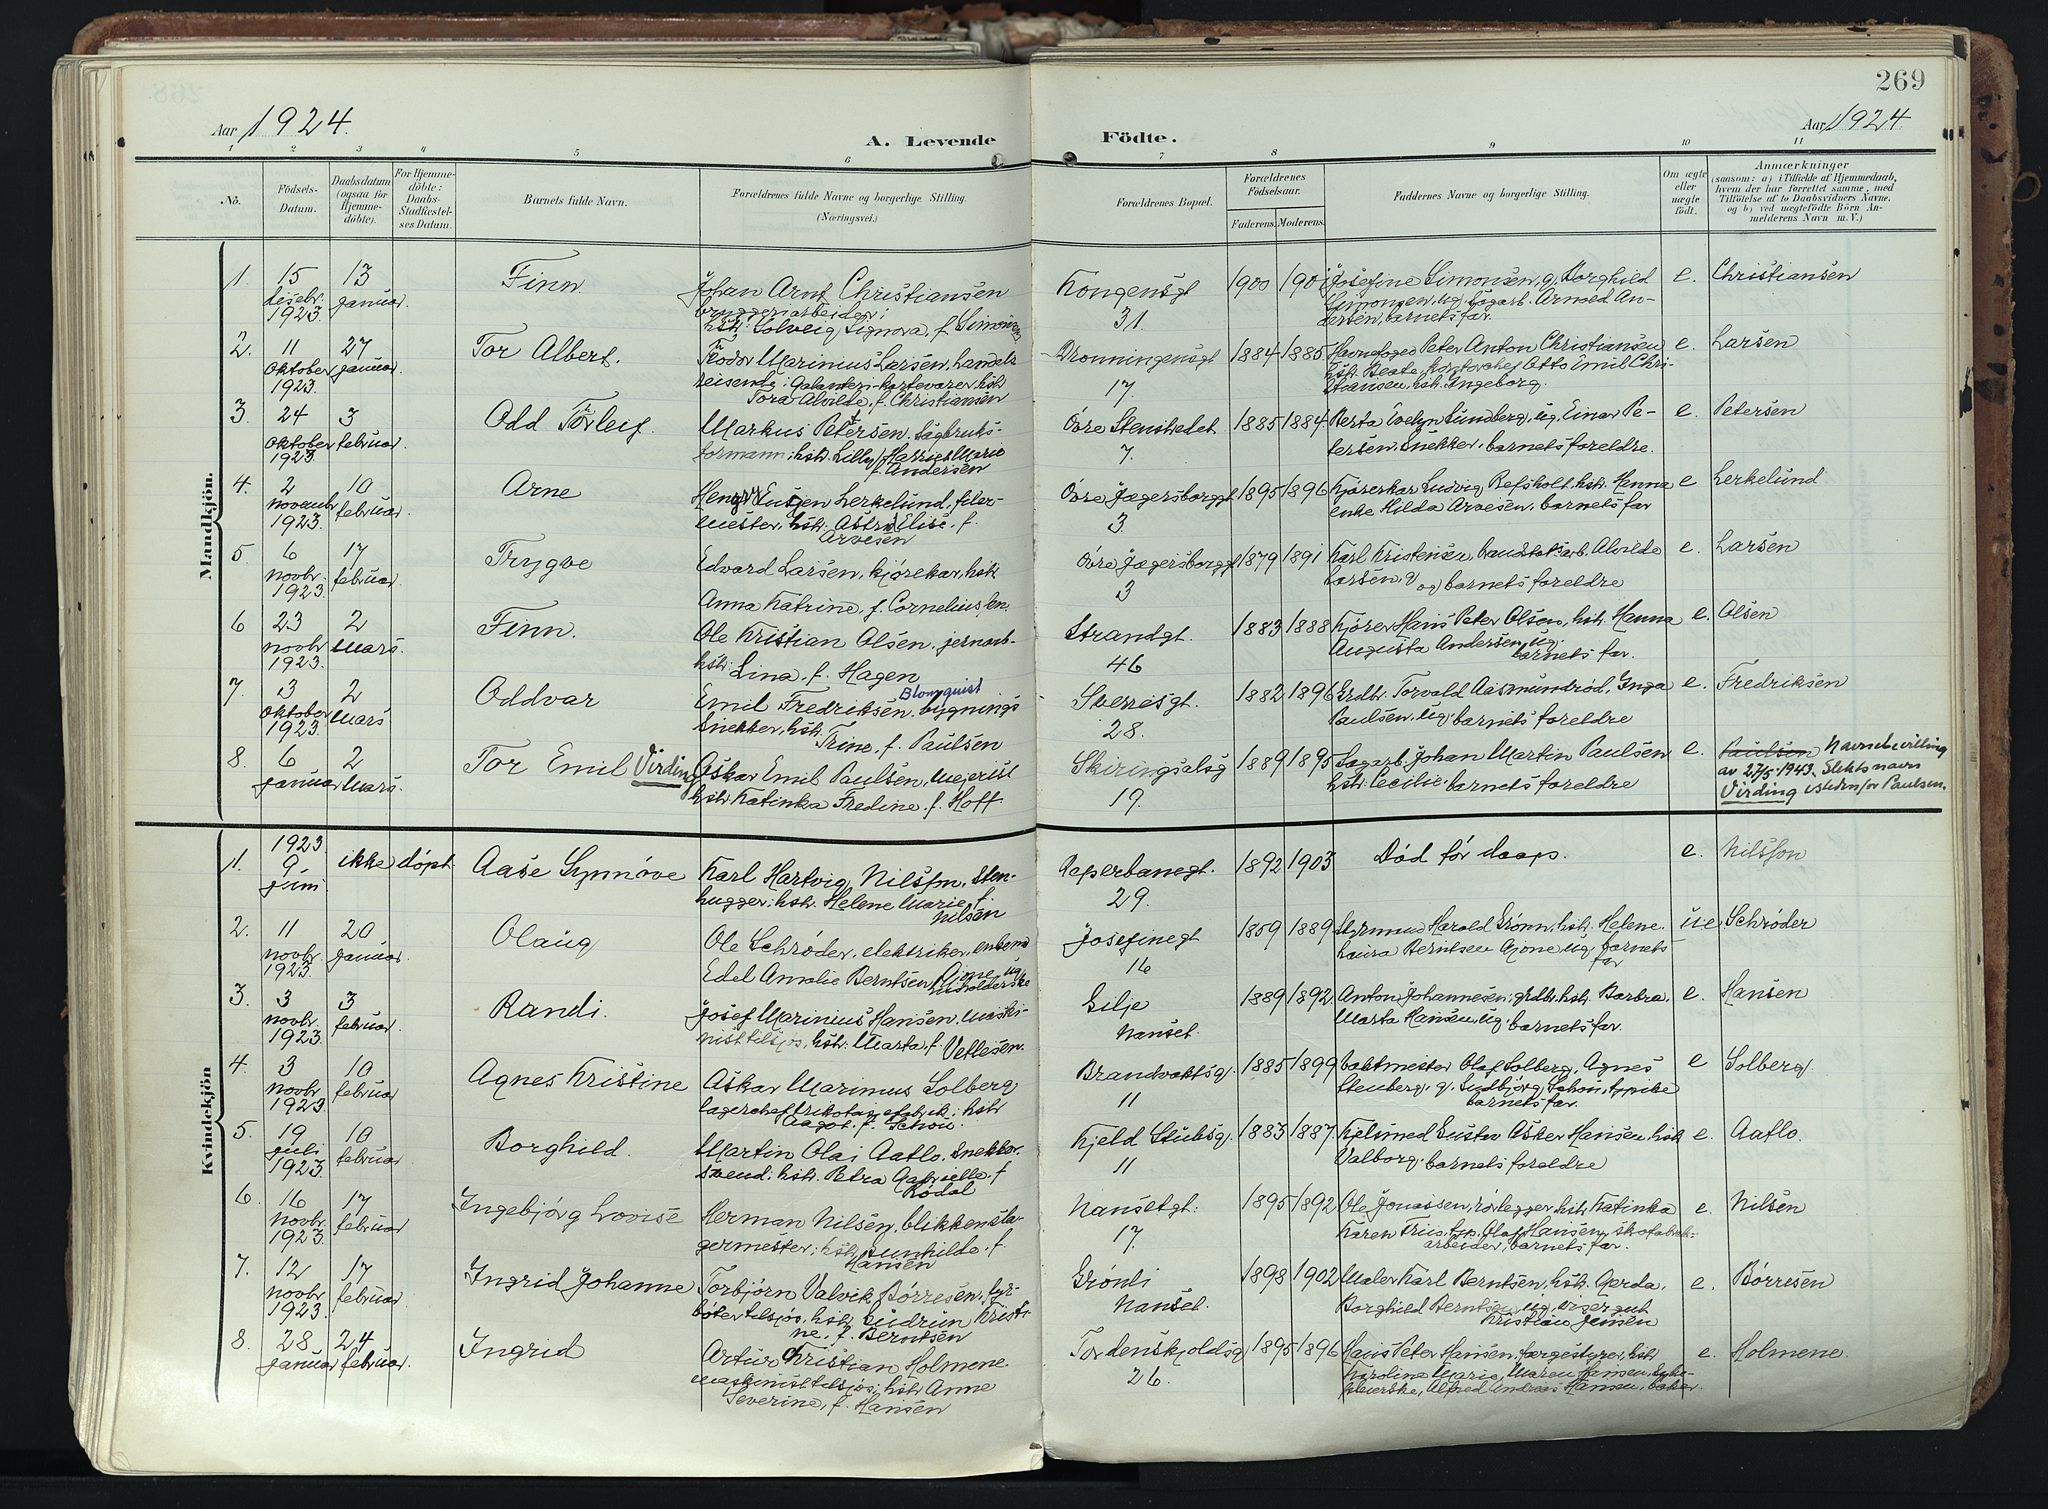 269
Aar 1924.
A. Levende
Födte.
Aar 1924.
1 2 3 4 5 6 7 8 9 10 11
No.
Födsels-
Datum.
Daabsdatum
(ogsaa for
Hjemme-
döbte).
For Hjemme-
döbte:
Daabs-
Stadfæstel-
ses Datum.
Barnets fulde Navn.
Forældrenes fulde Navne og borgerlige Stilling.
(Næringsvei.)
Forældrenes Bopæl.
Forældrenes
Födselsaar.
Faderens. Moderens.
Faddernes Navne og borgerlige Stilling.
Om ægte
eller
uægte
födt.
Anmærkninger
(saasom: a) i Tilfælde af Hjemmedaab,
hvem der har forrettet samme, med
Tilföielse af to Daabsvidners Navne.
og b) ved uægtefödte Börn An-
melderens Navn m. V.)
Mandkjön.
1. 15 Desebr. 1923 13 januar
Finn.
Johan Arnt Christiansen
bryggeriarbeider;
hstr. Solveig Signora, f. Simonsen
Kongensgt
31.
1900 1901
Josefine Simonsen, g. Borghild
Simonsen, ug. Sagarb. Arnold An-
dersen, barnets far.
e. Christiansen
2. 11 Oktober 1923 27 januar
Tor Albert.
Teodor Marinius Larsen, handels
reisende i Galanteri-kortevarer, hstr
Tora Alvilde, f. Christiansen
Dronningensgt
17.
1884 1885
Havnefoged Peter Anton Christiansen
hstr. Beate, kontorchef Otto Emil Chri-
stiansen, hstr. Ingeborg.
e. Larsen
3. 24 Oktober 1923 3 februar
Odd Torleif.
Markus Petersen. Sagbruks-
formann; hstr. Lilly Harriet Marie
f. Andersen
Övre Stenstredet
7.
1885 1884
Berta Evelyn Lundberg, ug. Einar Pe-
tersen, Snekker. barnets foreldre.
e. Petersen
4. 2 novembr 1923 10 februar
Arne
Henry Eugen Lerkelund, filer-
mester, hstr. Astrid Elise, f.
Arvesen
Övre Jægersborggt
3
1895 1896
Kjörerkar Ludvig Refsholt, hstr. Hanna
enke Hilda Arvesen, barnets far
e Lerkelund
5 6 novbr. 1923 17 februar.
Trygve
Edvard Larsen, kjörekar, hstr
Anna Katrine, f. Corneliussen.
Övre Jægersborggt
3
1879 1891
Karl Kristensen, arb. Alvilde
Larsen, g og barnets foreldre
e. Larsen
6 23 novbr 1923 2 Mars.
Finn.
Ole Kristian Olsen, jernarb-
hstr. Lina, f. Hagen
Strandgt.
46
1883 1888
Kjörer Hans Peter Olsen, hstr. Hanna
Augusta Andersen, ug.
barnets far.
e. Olsen
7. 3 Oktober 1923 2 Mars
Oddvar
Blomquist
Emil Fredriksen. bygnings
snekker, hstr.
Trine, f. Paulsen
Sverresgt.
28.
1882 1896
Grdbr. Torvald Aasmundröd, Inga
Paulsen, ug. barnets foreldre
e. Fredriksen
8. 6 januar 2 Mars.
Tor Emil Virding
Askar Emil Paulsen, mejerist
hstr. Katinka Fredine, f. Hoff
Skiringsalsg
19.
1889 1895
Sagarb. Johan Martin Paulsen
hstr. Cecilie. barnets foreldre
e. Paulsen Navnebevilling
av 27/5 1943. Slektsnavn
Virding istedenfor Paulsen.
Kvindekjön
1. 1923. 9 juni ikke döpt.
Aase Synnöve
Karl Hartvig Nilsson, Sten-
hugger; hstr. Helene Marie, f.
Nilsen
Reperbanegt.
29.
1892 1903
Död för daap.
e. Nilsson
2. 11 novbr 1923. 20 januar.
Olaug
Ole Schröder, elektriker, enkem.
Edel Amalie Berntsen Gjone, ug
husholderske
Josefinegt
16
1859 1889
Styrmand Harald Grönn, hstr. Helene.
Laura Berntsen Gjone ug, barnets
far
üe Schröder
3. 3 novbr. 1923 3 februar
Randi.
Josef Marinius Hansen, maski-
nist tilsjös, hstr. Marta, f. Vetlesen.
Gilje
Nanset.
1889 1892.
Anton Johannesen; grdbr. hstr. Barbra,
Marta Hansen, ug. barnets far.
e. Hansen
4. 3 novbr 1923 10 februar
Agnes Kristine
Askar Marinius Solberg
lagerchef trikotagefabrik; hstr
Aagot. f. Schou.
Brandvaktsg.
11
1885 1899
Vaktmester Olaf Solberg, Agnes
Stenberg, g. Gudbjörg Schou,
barnets far.
e Solberg
5. 19 juli 1923 10 februar
Borghild.
Martin Olai Aatlo. Snekker-
svend; hstr. Petra Gabrielle. f
Rödal
Kjeld Stubsg.
11
1883 1887
Kjelsmed Gustav Asker Hansen, hstr
Valborg. barnets foreldre
e. Aatlo.
6. 16 Novbr. 1923. 17 februar
Ingebjörg Lovise
Herman Nilsen, blikkensla-
germester; hstr. Gunhilde. f.
Hansen
Nansetgt.
17.
1895 1892
Ole Jonassen, rörlegger, hstr Katinka
Karen Friis, Olaf Hansen, skofabrik-
arbeider, barnets far.
e. Nilsen
7. 12 novbr 1923. 17 februar.
Ingrid Johanne
Torbjörn Valvik Börresen, fyr-
böter tilsjös, hstr Gudrun Kristi-
ne, f. Berntsen
Grönli
Nanset.
1898 1902
Maler Karl Berntsen, hstr. Gerda,
Borghild Berntsen ug. visergut
Kristian Jansen
e. Börresen
8. 28 januar 24 februar.
Ingrid
Artur Kristian Holmene.
maskinist tilsjös; hstr Anne
Severine, f. Hansen
Tordenskjoldsg
26.
1895 1896
Hans Peter Hansen. færgestyrer, hstr
Karoline Marie, Maren Hansen, Syke-
pleierske, Alfred Andreas Hansen, baker
e. Holmene.